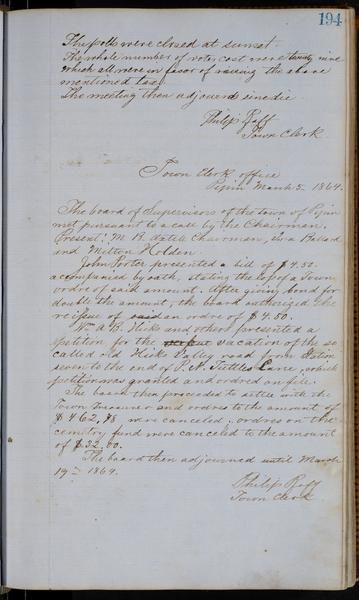 194
The polls were closed at sunset.
The whole number of votes cast were twenty nine
which all were in favor of raising the above
mentioned tax.
The meeting then adjourned sine die
Philip Raff
Town Clerk
Town Clerk office
March 5. 1864.
The board of Supervisors of the town of
met pursuant to a call by the Chairman.
Present: M. B. Chairman, Ira Ballard
and Milton Holden.
John Porter presented a bill of $4.50.
accompanied by oath, stating the loss of a Town
order of said amount. After giving bond for
double the amount, the board authorized the
reissue of said an ordre of $4.50.
Wm A. R. Hicks and others presented a
petition for the vacation of the so
called old Hicks Valley road from
seven to the end of P. N. Tuttles Lane, which
petition was granted and ordred on file.
The board then proceeded to settle with the
Town Treasurer and ordres to the amount of
$462,78 were canceled. ordres on the
cemetry fund were canceled to the amount
of $32.00.
The board then adjourned until March
19th 1864.
Philip Raff
Town Clerk